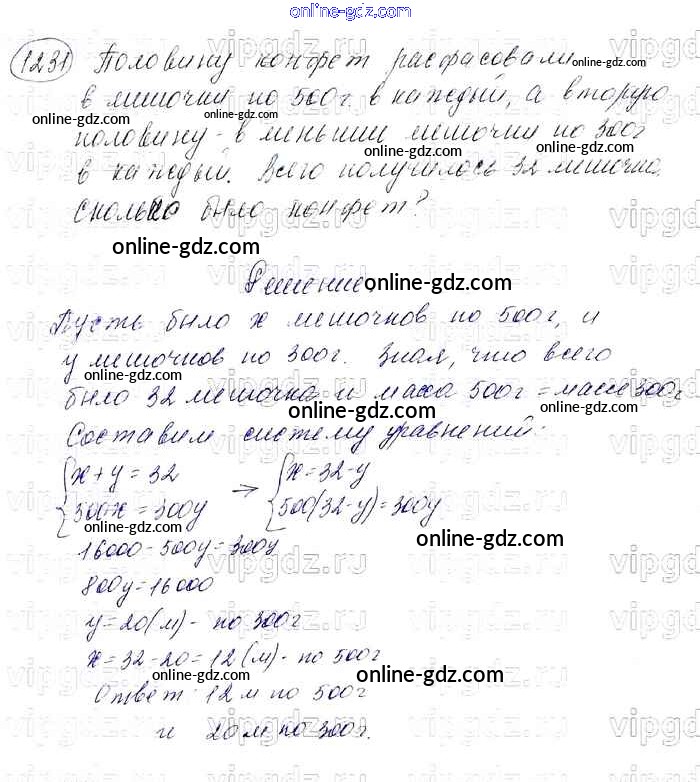 online-gdz.com
1231 Половину конфет расфасовали
в мешочки по 500г в каждый, а вторую
половину - в меньшии мешочки по 300г
в каждый. Всего получилось 32 мешочка.
Сколько было конфет?
Решение
Пусть было x мешочков по 500г, и
y мешочков по 300г. Зная, что всего
было 32 мешочка и масса 500г = массе 300г
Составим систему уравнений:
x + y = 32 → x = 32 - y
500x = 300y 500(32 - y) = 300y
16000 - 500y = 300y
800y = 16000
y = 20(м) - по 300г
x = 32 - 20 = 12(м) - по 500г
Ответ: 12 м по 500г
и 20 м по 300г.